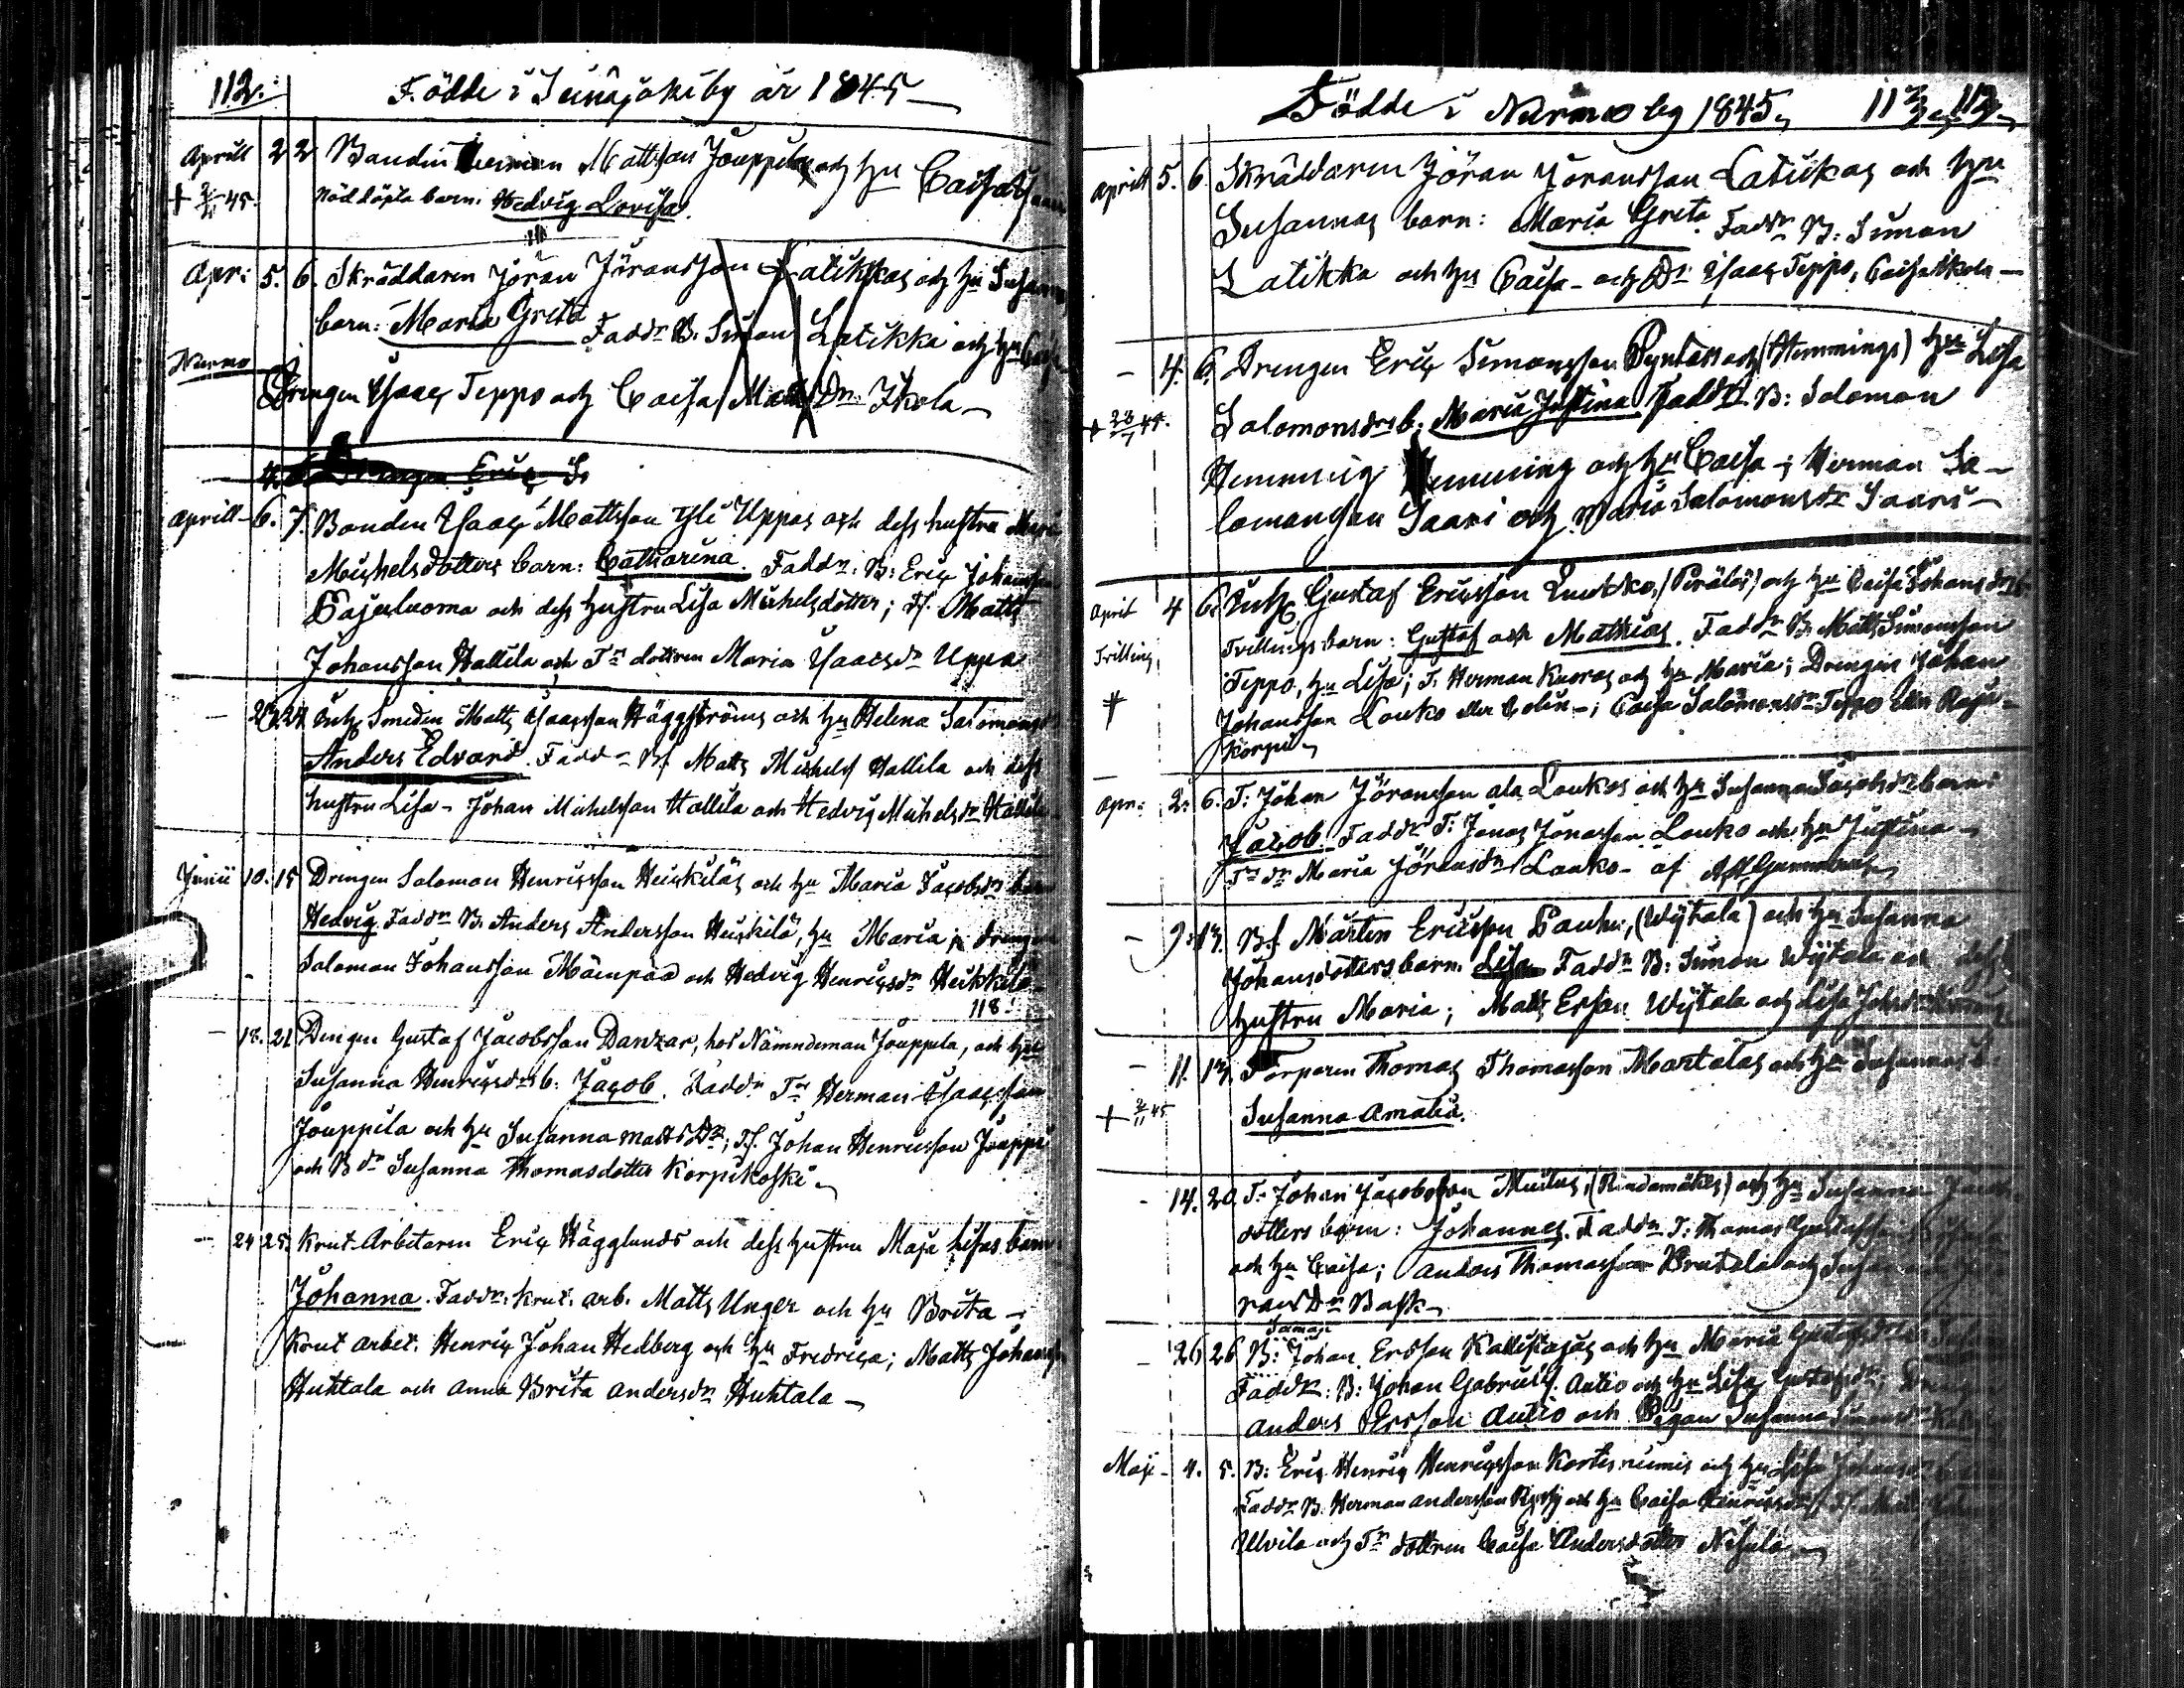 112. Födde i Seinäjoki by år 1845
Aprill 2 2 Bonden Herman Mattsson Jouppilas och Hu Caisas
+ 2/4 45. Nöddöpta barn: Hedvig Lovisa.
Apr: 5. 6. Skräddaren Jöran Jöransson Latikkas och Hu Susannas
barn: Maria Greta Faddr B. Simon Latikka och Hu Caisa
Nurmo
Drengen Isaac Teppo och Caisa Matts Dr. Ikola
4. Drengen Eric S.
Aprill - 6. 7. Bonden Isaac Mattsson Yli Uppas och dess hustru Maria
Michelsdotters barn: Catharina. Faddr: B: Eric Johansson
Pajuluoma och dess Hustru Lisa Michelsdotter; Bs. Matts
Johansson Hallila och Trs dottren Maria Isacsdr Uppa
27. Smeden Matts Isaacsson Häggströms och Hu Helena Salomons
Anders Edvard. Faddr Bs Matts Michels Hallila och dess
hustru Lisa - Johan Michelsson Hallila och Hedvig Michelsdr Hallila
Junii 10. 15 Drengen Salomon Henricsson Heickiläs och Hu Maria Jacobsdrs barn
Hedvig. Faddr B. Anders Andersson Heickilä, Hu Maria; drengen
Salomon Johansson Mäenpää och Hedvig Henricsdr Heikkilä
118.
- 18. 21 Drengen Gustaf Jacobsson Danzar, hos Nämndeman Jouppila, och Hu
Susanna Henricsdrs b: Jacob. Faddr Tr Herman Isaacsson
Jouppila och Hu Susanna Matts Dr; Ts. Johan Henricsson Jouppi
och B dr Susanna Thomasdotter Korpikoski
- 24 25. Krut-Arbetaren Eric Hägglunds och dess Hustru Maja Lisas barn
Johanna. Faddr: Krut. arb. Matts Unger och Hu Brita -
Krut arbet. Henric Johan Hedberg och Hu Fredrica; Matts Johansson
Huhtala och Anna Brita Andersdr Huhtala -
Födde i Nurmo by 1845, 112. 113.
Aprill 5. 6. Skräddaren Jöran Jöransson Latikkas och Hu
Susannas barn: Maria Greta. Faddr B: Simon
Latikka och Hu Caisa - och Dr: Isaac Teppo, Caisa Ikola -
- 4. 6. Drengen Eric Simonsson Pyntäri och (Hemmings) Hu Lisa
+ 28/7 45. Salomonsdrs b: Maria Justina Faddr B: Salomon
Hemming Hemming och Hu Caisa -; Herman Sa-
lomonsson Saari och Maria Salomonsdr Saari -
April 4 6. Gustaf Ericsson Luukko, (Peräläs) och Hu Caisa Johansdrs
Tvilling. Tvillingsbarn: Gustaf och Mathias. Faddr B. Matts Simonsson
Teppo, Hu Lisa; T. Herman Kuoras och Hu Maria; Drengen Johan
+ Johansson Louko eller Colin -; Caisa Salomonsdr Teppo eller Raju-
korpi
Apr: 2. 6. T: Johan Jöransson ala Loukos och Hu Susanna Jacobsdrs barn:
Jacob. Faddr T: Jonas Jonasson Louko och Hu Justina -
Trs dr Maria Jöransdr Louko - af
- 9. 13. Bs Mårten Ericsson Pauhu, (Wÿtala) och Hu Susanna
Johansdotters barn. Lisa Faddr B: Simon Wÿtala och dess
Hustru Maria; Matts Ersson Wÿtala och Lisa Johsdr
- 11. 13. Torparen Thomas Thomasson Martalas och Hu Susannas b.
+ 2/11 45 Susanna Amalia.
- 14. 20. T. Johan Jacobsson Mullus, (Rindamäkes) och Hu Susanna Jacobs
dotters barn: Johannes. Faddr T: Thomas Gustafsson
och Hu Caisa; Anders Thomasson Brudala och
Dr Bask
Samar
- 26 26 B: Johan Ersson Kallisajas och Hu Maria Gustafsdrs
Faddr: B: Johan Gabriels. Autio och Hu Lisa Gustafsdr;
Anders Ersson Autio och Pigan Susanna Simonsdr
Maji - 4. 5. B: Eric Henric Henricsson Kortesniemis och Hu Lisa Johansdr
Faddr B. Herman Andersson och Hu Caisa Henricsdr
Ulvila och Trs dottren Caisa Andersdotter Nisula